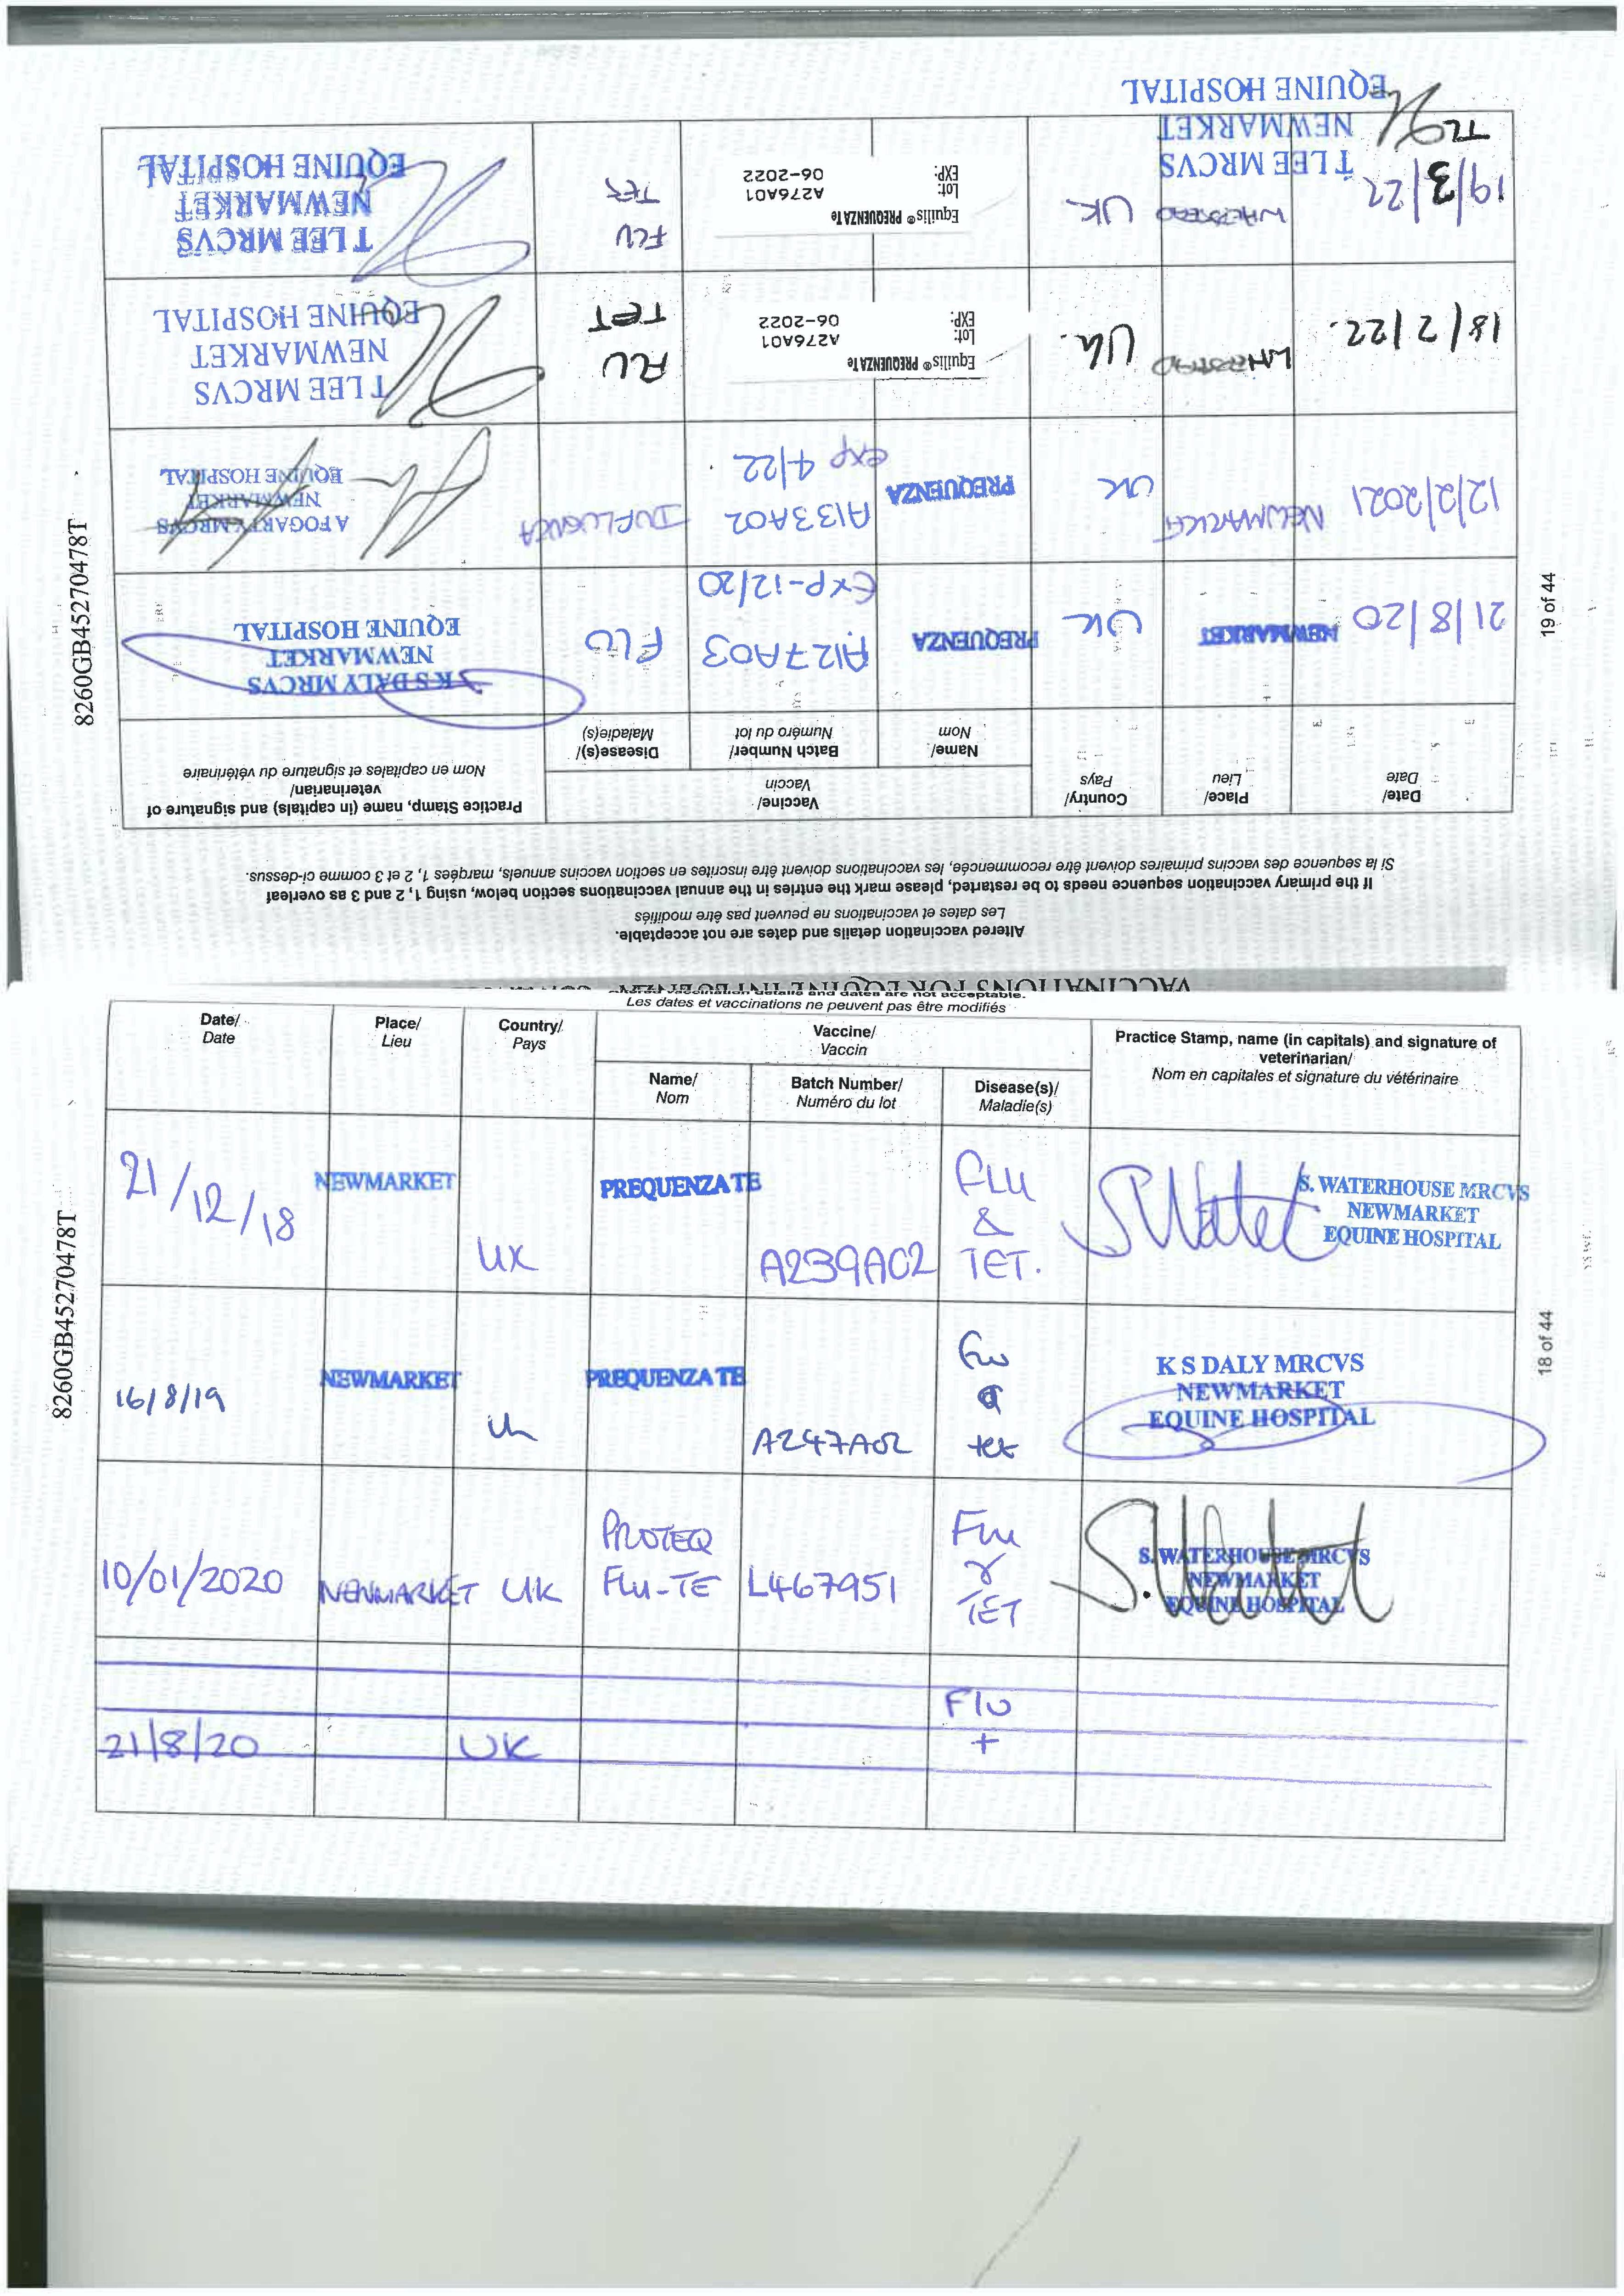 8260GB45270478T
18 of 44
VACCINATIONS FOR EQUINE INFLUENZA
Altered vaccination details and dates are not acceptable.
Les dates et vaccinations ne peuvent pas être modifiés
Date/ Date
Place/ Lieu
Country/ Pays
Vaccine/ Vaccin
Name/ Nom
Batch Number/ Numéro du lot
Disease(s)/ Maladie(s)
Practice Stamp, name (in capitals) and signature of
veterinarian/
Nom en capitales et signature du vétérinaire
21/12/18
NEWMARKET
UK
PREQUENZA TE
A239A02
FLU
&
TET.
S. WATERHOUSE MRCVS
NEWMARKET
EQUINE HOSPITAL
16/8/19
NEWMARKET
UK
PREQUENZA TE
A247A02
Flu
&
tet
K S DALY MRCVS
NEWMARKET
EQUINE HOSPITAL
10/01/2020
NEWMARKET
UK
PROTEQ
FLU-TE
L467951
Flu
&
TET
S. WATERHOUSE MRCVS
NEWMARKET
EQUINE HOSPITAL
21/8/20
UK
Flu
+
8260GB45270478T
19 of 44
Altered vaccination details and dates are not acceptable.
Les dates et vaccinations ne peuvent pas être modifiés
If the primary vaccination sequence needs to be restarted, please mark the entries in the annual vaccinations section below, using 1, 2 and 3 as overleaf
Si la sequence des vaccins primaires doivent être recommencée, les vaccinations doivent être inscrites en section vaccins annuels, marqées 1, 2 et 3 comme ci-dessus.
Date/ Date
Place/ Lieu
Country/ Pays
Vaccine/ Vaccin
Name/ Nom
Batch Number/ Numéro du lot
Disease(s)/ Maladie(s)
Practice Stamp, name (in capitals) and signature of
veterinarian/
Nom en capitales et signature du vétérinaire
21/8/20
NEWMARKET
UK
PREQUENZA
A127A03
Exp-12/20
FLU
K S DALY MRCVS
NEWMARKET
EQUINE HOSPITAL
12/2/2021
NEWMARKET
UK
PREQUENZA
A133A02
exp 4/22
INFLUENZA
A FOGARTY MRCVS
NEWMARKET
EQUINE HOSPITAL
18/2/22.
UK.
Equilis® PREQUENZA Te
Lot: A276A01
EXP: 06-2022
FLU
TET
T LEE MRCVS
NEWMARKET
EQUINE HOSPITAL
19/3/22
UK
Equilis® PREQUENZA Te
Lot: A276A01
EXP: 06-2022
FLU
TET
T LEE MRCVS
NEWMARKET
EQUINE HOSPITAL
TL
T LEE MRCVS
NEWMARKET
EQUINE HOSPITAL